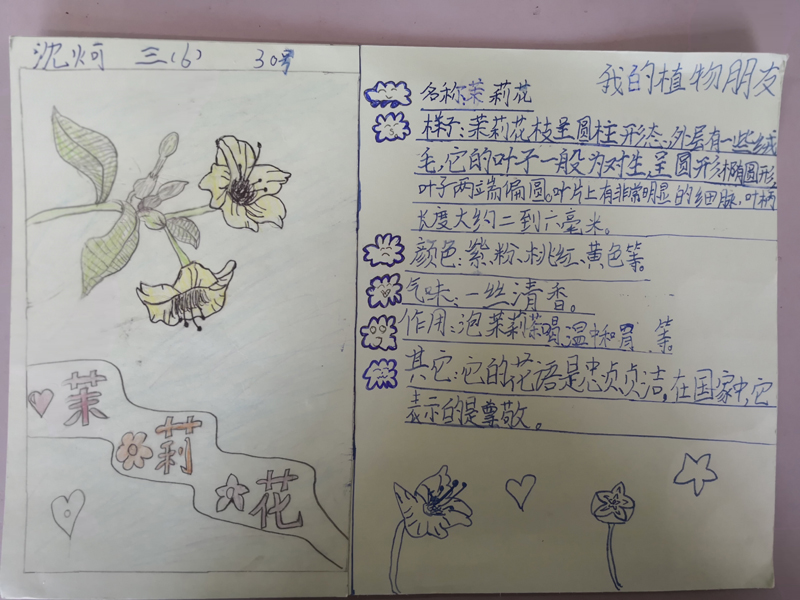 沈炣 三(6) 30号
茉
莉
花
我的植物朋友
名称:茉莉花
样子:茉莉花枝呈圆柱形态,外层有一些绒
毛,它的叶子一般为对生,呈圆形、椭圆形,
叶子两端偏圆。叶片上有非常明显的细脉,叶柄
长度大约二到六毫米。
颜色:紫、粉、桃红、黄色等。
气味:一丝清香。
作用:泡茉莉茶喝,温中和胃等。
其它:它的花语是忠贞贞洁,在国家中,它
表示的是尊敬。